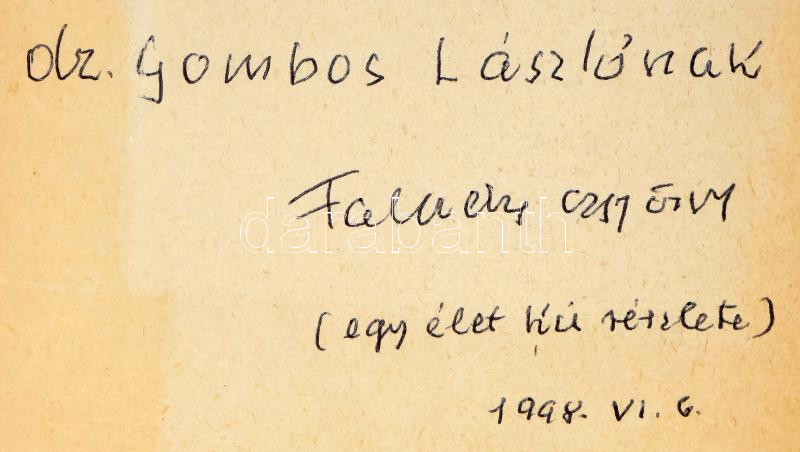 dr. Gombos Lászlónak
Faludy György
darabanth
(egy élet kis részlete)
1998. VI. 6.